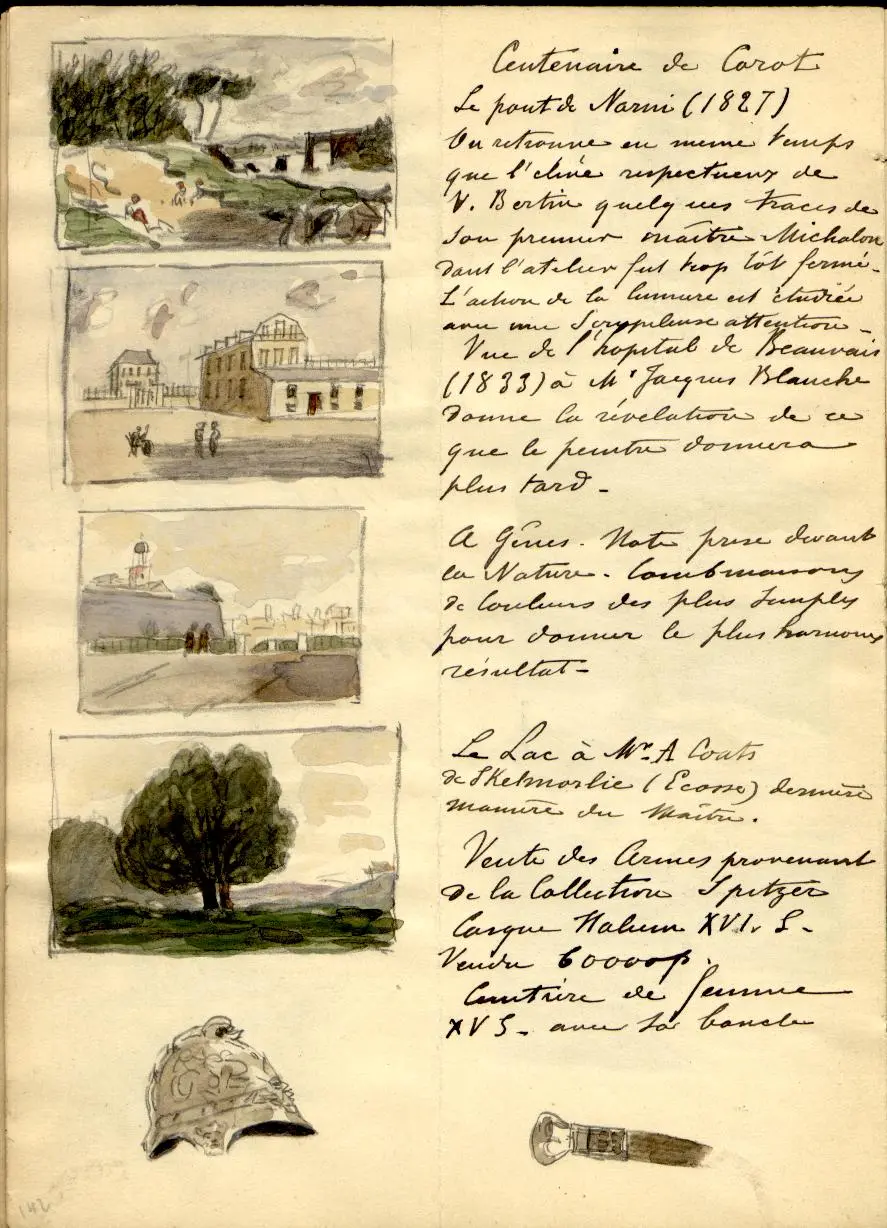 Centenaire de Corot
Le pont de Narni (1827)
On retrouve en meme temps
que l'élève respectueux de
V. Bertin quelques traces de
son premier maître Michalon
dont l'atelier fut trop tôt fermé.
L'action de la lumiere est étudiée
avec une scrupuleuse attention -
Vue de l'hopital de Beauvais
(1833) à Mr Jacques Blanche
donne la révélation de ce
que le peintre donnera
plus tard -
A Gênes. Note prise devant
la Nature. Combinaisons
de couleurs des plus simples
pour donner le plus harmonieux
résultat -
Le Lac à Mr A Coats
de Skelmorlie (Ecosse) dernière
manière du Maître.
Vente des Armes provenant
de la Collection Spitzer
Casque Italien XVI. S.
Vendu 60000f.
Ceinture de femme
XV S. avec sa boucle
142